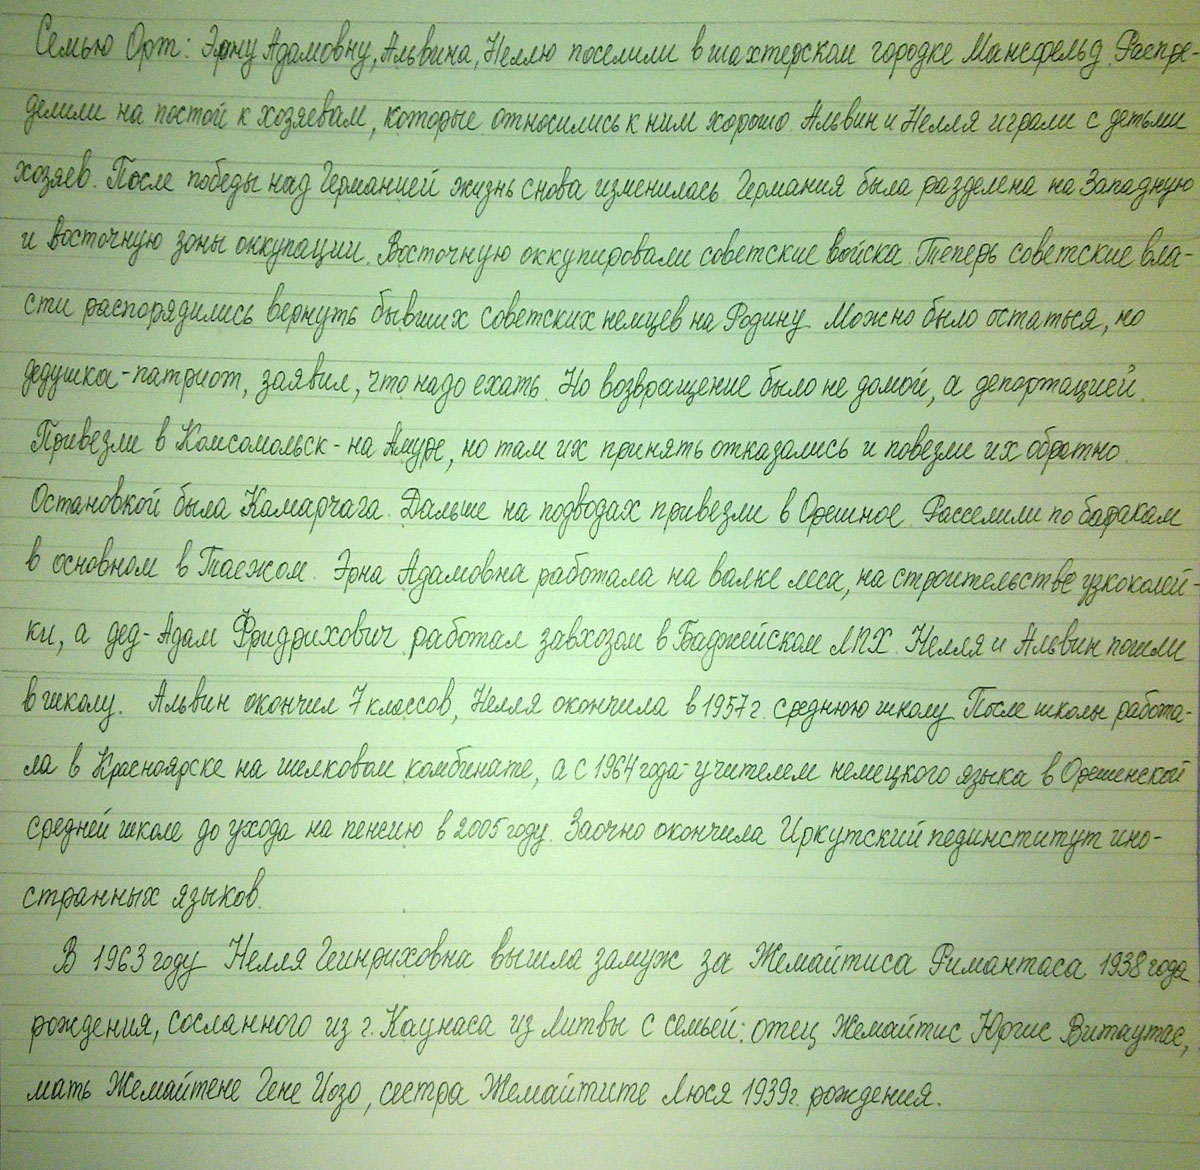 Семью Орт: Эрну Адамовну, Альвина, Неллю поселили в шахтерском городке Мансфельд. Распре-
делили на постой к хозяевам, которые относились к ним хорошо. Альвин и Нелля играли с детьми
хозяев. После победы над Германией жизнь снова изменилась. Германия была разделена на Западную
и восточную зоны оккупации. Восточную оккупировали советские войска. Теперь советские вла-
сти распорядились вернуть бывших советских немцев на Родину. Можно было остаться, но
дедушка-патриот, заявил, что надо ехать. Но возвращение было не домой, а депортацией.
Привезли в Комсомольск-на Амуре, но там их принять отказались и повезли их обратно.
Остановкой была Камарчага. Дальше на подводах привезли в Орешное. Расселили по баракам
в основном в Таежом. Эрна Адамовна работала на валке леса, на строительстве узкоколей-
ки, а дед-Адам Фридрихович работал завхозом в Баджейском ЛПХ. Нелля и Альвин пошли
в школу. Альвин окончил 7 классов, Нелля окончила в 1957 г. среднюю школу. После школы работа-
ла в Красноярске на шелковом комбинате, а с 1964 года-учителем немецкого языка в Орешенской
средней школе до ухода на пенсию в 2005 году. Заочно окончила Иркутский пединститут ино-
странных языков.
В 1963 году Нелля Генриховна вышла замуж за Жемайтиса Римантаса 1938 года
рождения, сосланного из г. Каунаса из Литвы с семьей: отец Жемайтис Юргис Витаутас,
мать Жемайтене Гене Иозо, сестра Жемайтите Люся 1939 г. рождения.